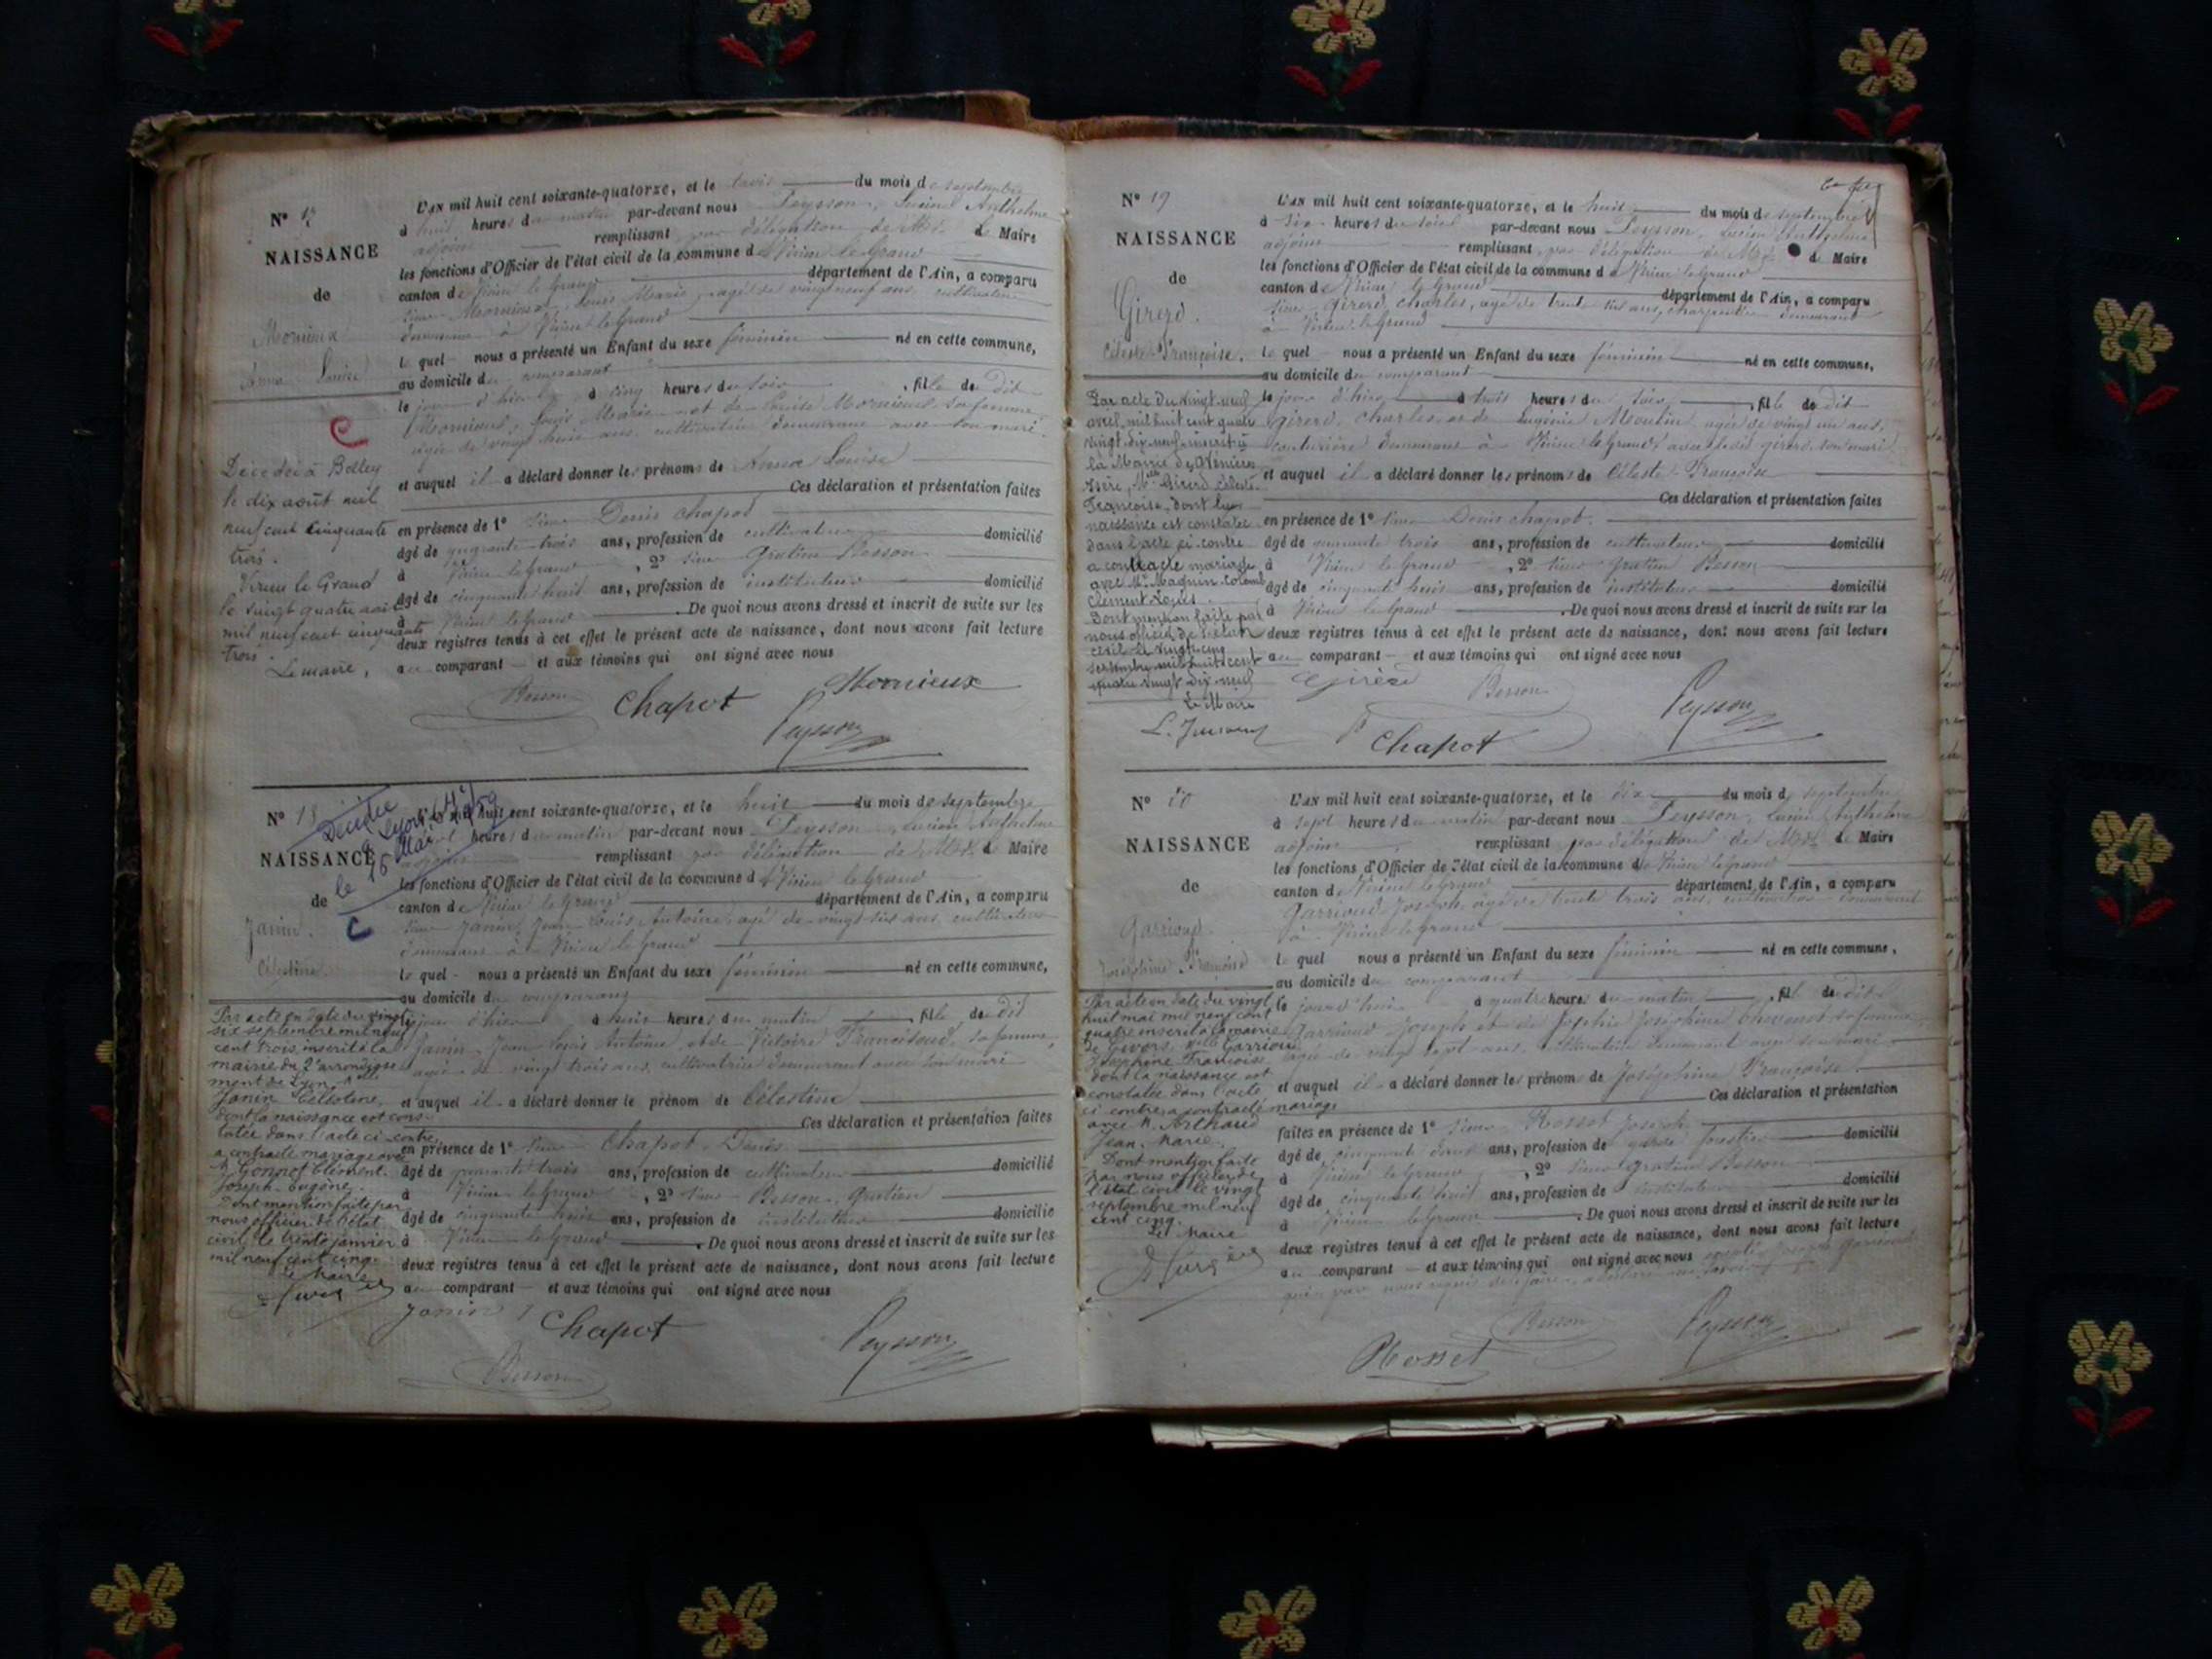 N° 17
NAISSANCE
de
Mornieux
Anna Louise
Décédée à Belley
le dix août mil
neuf cent cinquante
trois.
Virieu le Grand
le vingt quatre août
mil neuf cent cinquante
trois.
Le maire,
L'AN mil huit cent soixante-quatorze, et le trois du mois de septembre
à huit heures du matin par-devant nous Peysson, Lucien Anthelme
adjoint remplissant par délégation de Mr. le Maire
les fonctions d'Officier de l'état civil de la commune de Virieu le Grand
canton de Virieu le Grand département de l'Ain, a comparu
sieur Mornieux Louis Marie, agé de vingt neuf ans, cultivateur
demeurant à Virieu le Grand
le quel nous a présenté un Enfant du sexe féminin né en cette commune,
au domicile du comparant
le jour d'hier à cinq heures du soir, fille du dit
Mornieux, Louis Marie et de Louise Mornieux sa femme
agée de vingt huit ans, cultivatrice demeurant avec son mari.
et auquel il a déclaré donner les prénoms de Anna Louise
Ces déclaration et présentation faites
en présence de 1° sieur Denis Chapot
âgé de quarante trois ans, profession de cultivateur domicilié
à Virieu le Grand, 2° sieur Gratien Besson
âgé de cinquante huit ans, profession de instituteur domicilié
à Virieu le Grand. De quoi nous avons dressé et inscrit de suite sur les
deux registres tenus à cet effet le présent acte de naissance, dont nous avons fait lecture
au comparant et aux témoins qui ont signé avec nous
Besson Chapot Mornieux
Peysson
N° 18
NAISSANCE
de
Janin.
Célestine
Décédée
à Lyon (4e)
le 16 Mai 1959
Par acte en date du vingt
six septembre mil neuf
cent trois inscrit à la
mairie du 2e arrondisse
ment de Lyon, Melle
Janin Célestine,
dont la naissance est cons-
tatée dans l'acte ci-contre,
a contracté mariage avec
M. Gonnot Clément.
Joseph. Eugène.
Dont mention faite par
nous officier de l'état
civil, le trente janvier
mil neuf cent cinq.
Le Maire
L'AN mil huit cent soixante-quatorze, et le huit du mois de septembre
heures du matin par-devant nous Peysson, Lucien Anthelme
adjoint remplissant par délégation de Mr. le Maire
les fonctions d'Officier de l'état civil de la commune de Virieu le Grand
canton de Virieu le Grand département de l'Ain, a comparu
sieur Janin, Jean Louis Antoine, agé de vingt six ans, cultivateur
demeurant à Virieu le Grand
le quel nous a présenté un Enfant du sexe féminin né en cette commune,
au domicile du comparant
le jour d'hier à huit heures du matin, fille du dit
Janin, Jean Louis Antoine, et de Victoire sa femme,
agée de vingt trois ans, cultivatrice demeurant avec son mari
et auquel il a déclaré donner le prénom de Célestine
Ces déclaration et présentation faites
en présence de 1° sieur Chapot Denis
âgé de quarante trois ans, profession de cultivateur domicilié
à Virieu le Grand, 2° sieur Besson, Gratien
âgé de cinquante huit ans, profession de instituteur domicilié
à Virieu le Grand. De quoi nous avons dressé et inscrit de suite sur les
deux registres tenus à cet effet le présent acte de naissance, dont nous avons fait lecture
au comparant et aux témoins qui ont signé avec nous
Janin Chapot Peysson
Besson
N° 19
NAISSANCE
de
Girerd.
Céleste Françoise.
Par acte du vingt neuf
avril, mil huit cent quatre
vingt dix neuf inscrit à
la Mairie des Avenières
Isère, Melle Girerd Céleste
Françoise, dont la
naissance est constatée
dans l'acte ci-contre
a contracté mariage
avec Mr Maquin Colomb
Clément Louis.
Dont mention faite par
nous officier de l'état
civil le vingt cinq
septembre mil huit cent
quatre vingt dix neuf
Le Maire
L'AN mil huit cent soixante-quatorze, et le huit du mois de septembre
à six heures du soir par-devant nous Peysson, Lucien Anthelme
adjoint remplissant par délégation de Mr. le Maire
les fonctions d'Officier de l'état civil de la commune de Virieu le Grand
canton de Virieu le Grand département de l'Ain, a comparu
sieur Girerd, Charles, agé de trente six ans, charpentier demeurant
à Virieu le Grand
le quel nous a présenté un Enfant du sexe féminin né en cette commune,
au domicile du comparant
le jour d'hier à trois heures du soir, fille du dit
Girerd, Charles, et de Eugénie Moulin, agée de vingt un ans,
couturière demeurant à Virieu le Grand, avec le dit Girerd, son mari
et auquel il a déclaré donner les prénoms de Céleste Françoise
Ces déclaration et présentation faites
en présence de 1° sieur Denis Chapot.
âgé de quarante trois ans, profession de cultivateur domicilié
à Virieu le Grand, 2° sieur Gratien Besson
âgé de cinquante huit ans, profession de instituteur domicilié
à Virieu le Grand. De quoi nous avons dressé et inscrit de suite sur les
deux registres tenus à cet effet le présent acte de naissance, dont nous avons fait lecture
au comparant et aux témoins qui ont signé avec nous
Girerd Besson Peysson
Chapot
N° 20
NAISSANCE
de
Garrioud.
Joséphine Françoise
Par acte en date du vingt
huit mai mil neuf cent
quatre inscrit à la mairie
de Givors, Melle Garrioud
Joséphine Françoise
dont la naissance est
constatée dans l'acte
ci-contre, a contracté mariage
avec M. Arthaud
Jean. Marie.
Dont mention faite
par nous officier de
l'état civil le vingt
septembre mil neuf
cent cinq.
Le Maire
L'AN mil huit cent soixante-quatorze, et le dix du mois de septembre
à sept heures du matin par-devant nous Peysson, Lucien Anthelme
adjoint remplissant par délégation de Mr. le Maire
les fonctions d'Officier de l'état civil de la commune de Virieu le Grand
canton de Virieu le Grand département de l'Ain, a comparu
Garrioud Joseph, agé de trente trois ans, cultivateur demeurant
à Virieu le Grand
le quel nous a présenté un Enfant du sexe féminin né en cette commune,
au domicile du comparant
le jourd'hui à quatre heures du matin, fille du dit
Garrioud Joseph et de Sophie Joséphine sa femme
agée de vingt sept ans, cultivatrice demeurant avec son mari
et auquel il a déclaré donner les prénoms de Joséphine Françoise.
Ces déclaration et présentation
faites en présence de 1° sieur Rosset Joseph
âgé de cinquante ans, profession de garde forestier domicilié
à Virieu le Grand, 2° sieur Gratien Besson
âgé de cinquante huit ans, profession de instituteur domicilié
à Virieu le Grand. De quoi nous avons dressé et inscrit de suite sur les
deux registres tenus à cet effet le présent acte de naissance, dont nous avons fait lecture
au comparant et aux témoins qui ont signé avec nous excepté Joseph Garrioud
Besson Peysson
Rosset